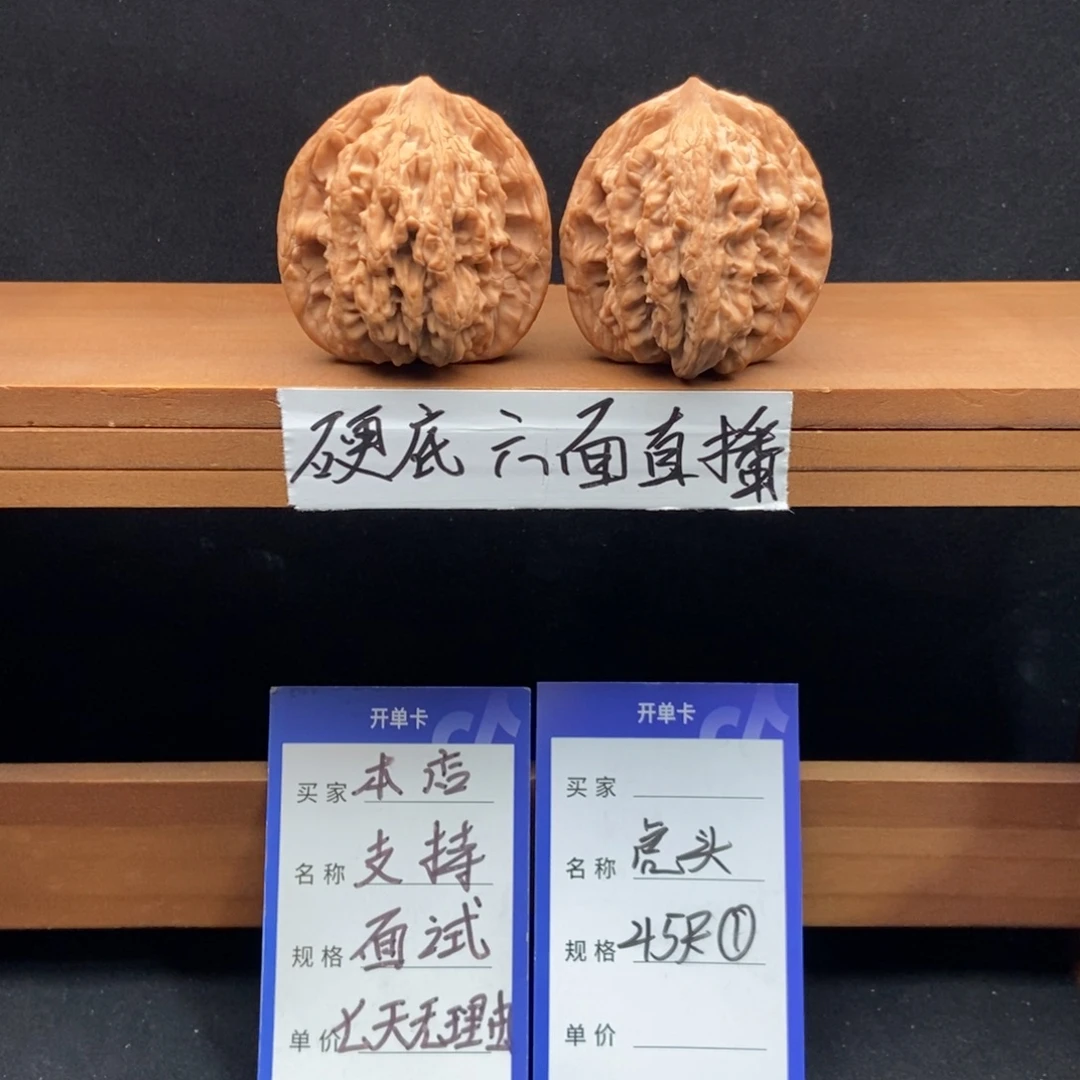 硬底 六面直播
开单卡
买家 本店
名称 支持
规格 面试
单价 七天无理由
开单卡
买家
名称 虎头
规格 45尺①
单价